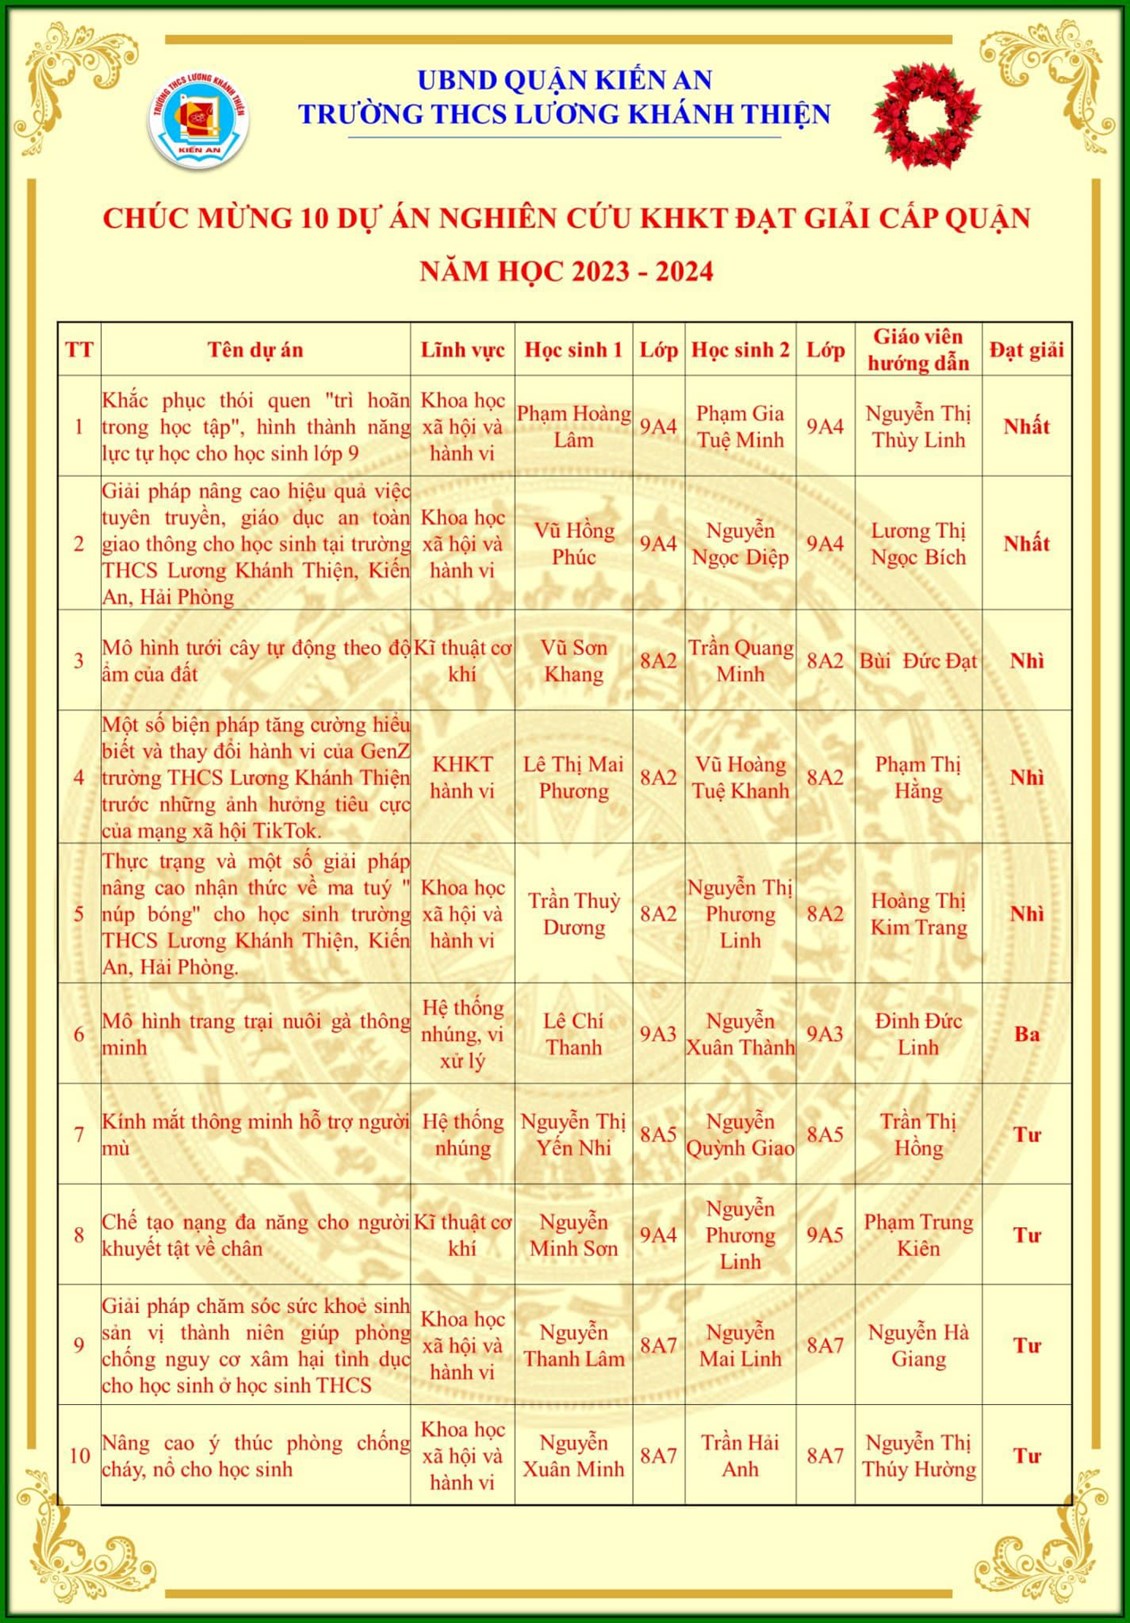 UBND QUẬN KIẾN AN
TRƯỜNG THCS LƯƠNG KHÁNH THIỆN
TRƯỜNG THCS LƯƠNG KHÁNH THIỆN
KIẾN AN
CHÚC MỪNG 10 DỰ ÁN NGHIÊN CỨU KHKT ĐẠT GIẢI CẤP QUẬN
NĂM HỌC 2023 - 2024
TT Tên dự án Lĩnh vực Học sinh 1 Lớp Học sinh 2 Lớp Giáo viên hướng dẫn Đạt giải
1 Khắc phục thói quen "trì hoãn trong học tập", hình thành năng lực tự học cho học sinh lớp 9 Khoa học xã hội và hành vi Phạm Hoàng Lâm 9A4 Phạm Gia Tuệ Minh 9A4 Nguyễn Thị Thùy Linh Nhất
2 Giải pháp nâng cao hiệu quả việc tuyên truyền, giáo dục an toàn giao thông cho học sinh tại trường THCS Lương Khánh Thiện, Kiến An, Hải Phòng Khoa học xã hội và hành vi Vũ Hồng Phúc 9A4 Nguyễn Ngọc Diệp 9A4 Lương Thị Ngọc Bích Nhất
3 Mô hình tưới cây tự động theo độ ẩm của đất Kĩ thuật cơ khí Vũ Sơn Khang 8A2 Trần Quang Minh 8A2 Bùi Đức Đạt Nhì
4 Một số biện pháp tăng cường hiểu biết và thay đổi hành vi của GenZ trường THCS Lương Khánh Thiện trước những ảnh hưởng tiêu cực của mạng xã hội TikTok. KHKT hành vi Lê Thị Mai Phương 8A2 Vũ Hoàng Tuệ Khanh 8A2 Phạm Thị Hằng Nhì
5 Thực trạng và một số giải pháp nâng cao nhận thức về ma tuý " núp bóng" cho học sinh trường THCS Lương Khánh Thiện, Kiến An, Hải Phòng. Khoa học xã hội và hành vi Trần Thuỳ Dương 8A2 Nguyễn Thị Phương Linh 8A2 Hoàng Thị Kim Trang Nhì
6 Mô hình trang trại nuôi gà thông minh Hệ thống nhúng, vi xử lý Lê Chí Thanh 9A3 Nguyễn Xuân Thành 9A3 Đinh Đức Linh Ba
7 Kính mắt thông minh hỗ trợ người mù Hệ thống nhúng Nguyễn Thị Yến Nhi 8A5 Nguyễn Quỳnh Giao 8A5 Trần Thị Hồng Tư
8 Chế tạo nạng đa năng cho người khuyết tật về chân Kĩ thuật cơ khí Nguyễn Minh Sơn 9A4 Nguyễn Phương Linh 9A5 Phạm Trung Kiên Tư
9 Giải pháp chăm sóc sức khoẻ sinh sản vị thành niên giúp phòng chống nguy cơ xâm hại tình dục cho học sinh ở học sinh THCS Khoa học xã hội và hành vi Nguyễn Thanh Lâm 8A7 Nguyễn Mai Linh 8A7 Nguyễn Hà Giang Tư
10 Nâng cao ý thúc phòng chống cháy, nổ cho học sinh Khoa học xã hội và hành vi Nguyễn Xuân Minh 8A7 Trần Hải Anh 8A7 Nguyễn Thị Thúy Hường Tư